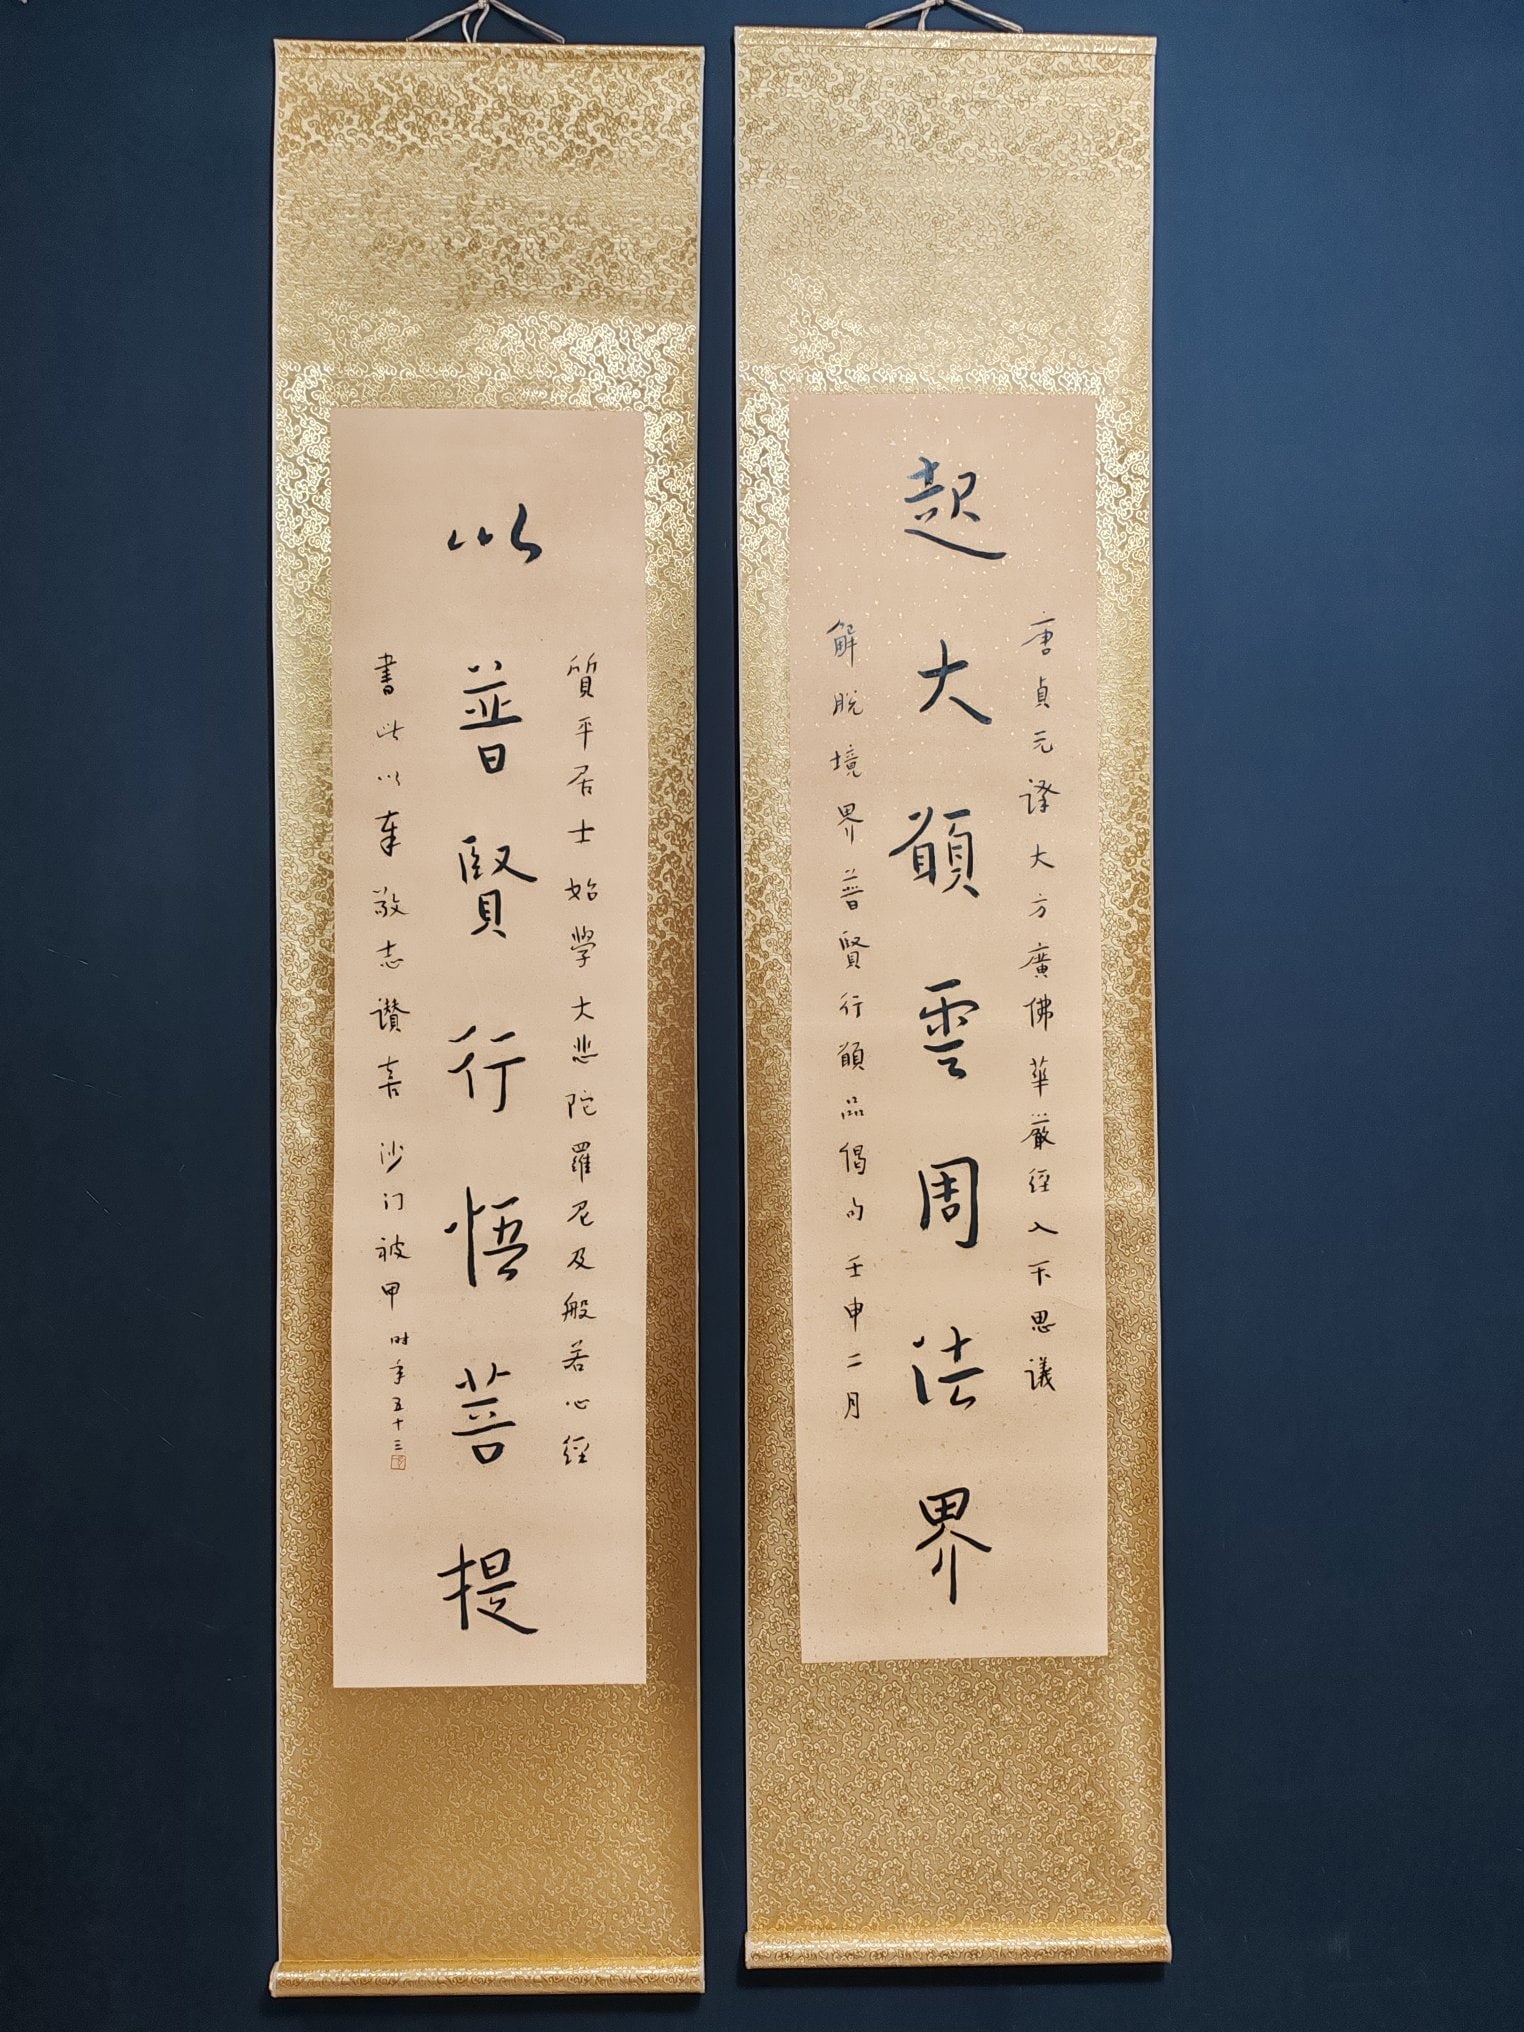 起大願雲周法界
唐貞元譯大方廣佛華嚴經入不思議
解脫境界普賢行願品偈句 壬申二月
以普賢行悟菩提
質平居士始學大悲陀羅尼及般若心經
書此以奉敬志讚喜 沙门被甲 时年五十三